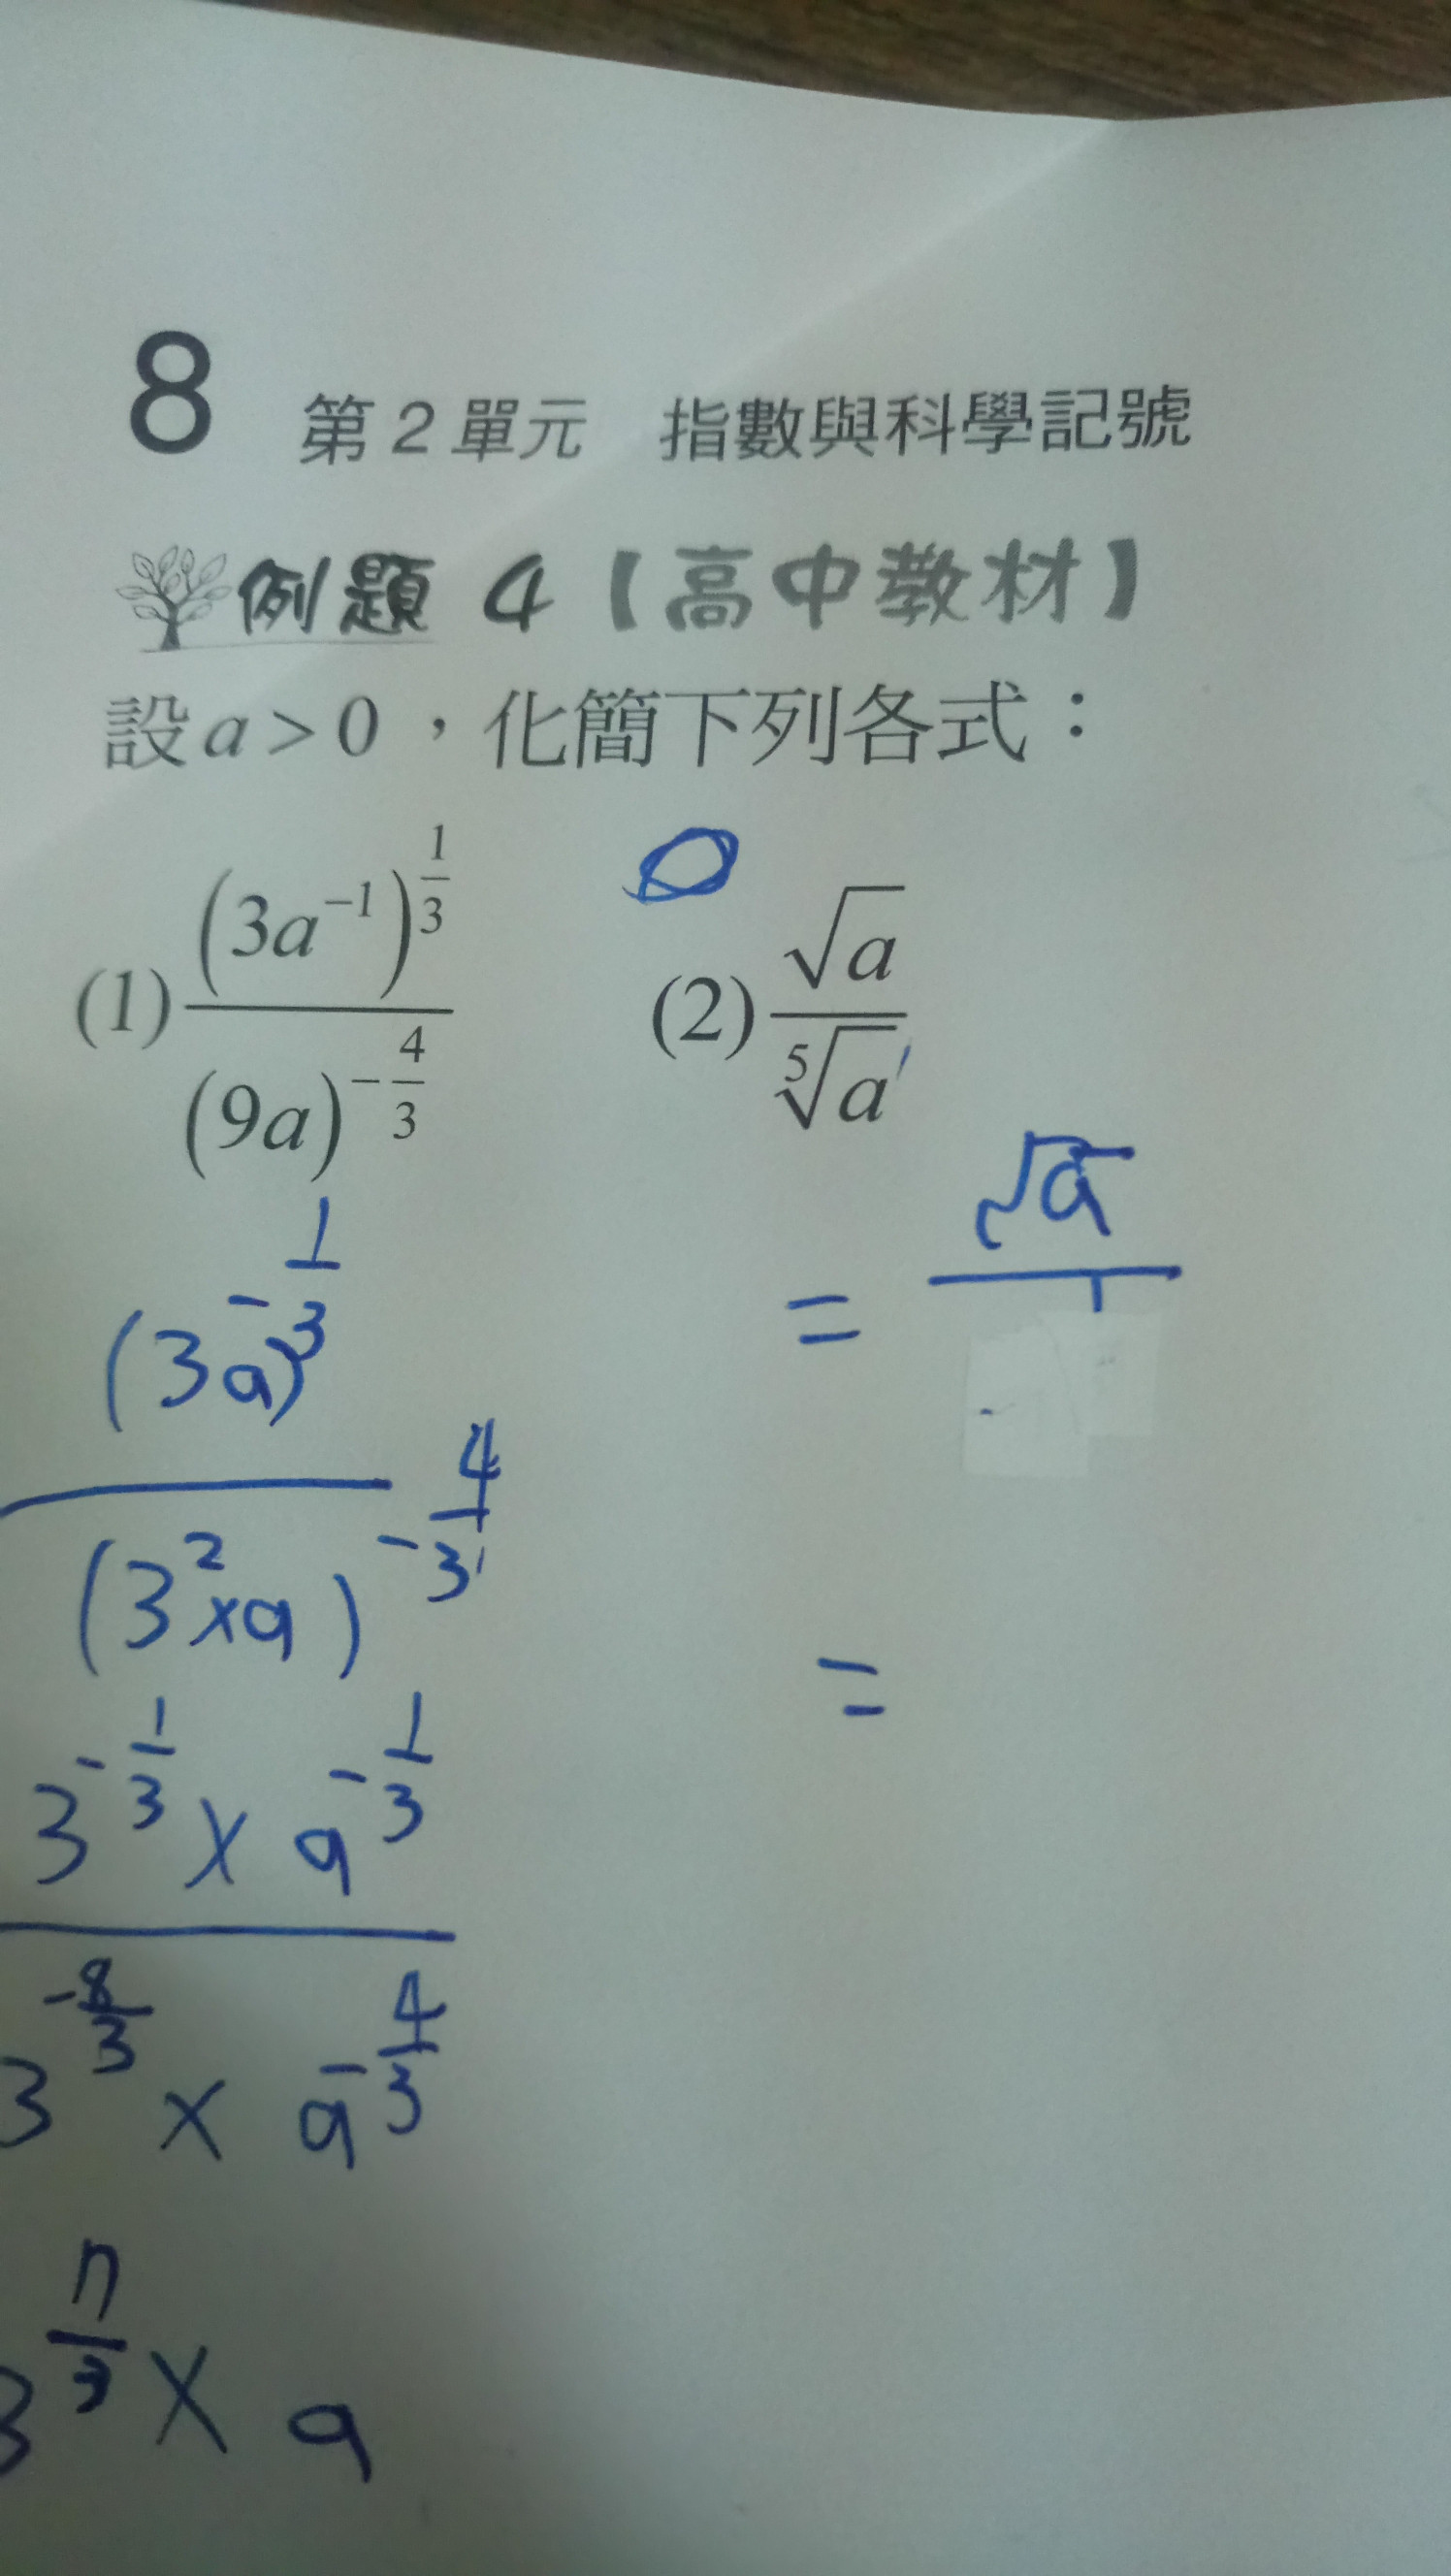 8 第2單元 指數與科學記號
例題 4【高中教材】
設 a > 0，化簡下列各式：
(1) (3a^{-1})^{1/3} / (9a)^{-4/3} (2) √a / ⁵√a
(3a)^{-1/3} / (3^2×a)^{-4/3}
= √a / 1
3^{-1/3} × a^{-1/3} / 3^{-8/3} × a^{-4/3}
=
3^{n/3} × a